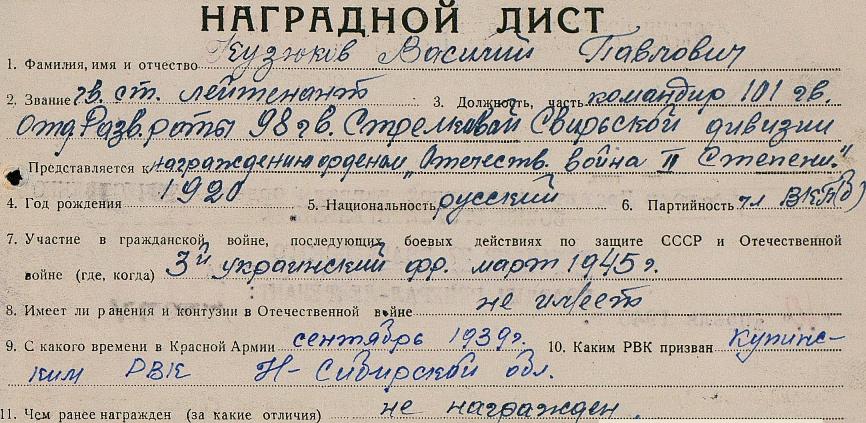 НАГРАДНОЙ ЛИСТ
1. Фамилия, имя и отчество Кузюков Василий Павлович
2. Звание гв. ст. лейтенант 3. Должность, часть командир 101 гв.
отд. Разв. роты 98 гв. Стрелковой Свирьской дивизии
Представляется к награждению орденом „Отечеств. война II Степени."
4. Год рождения 1920 5. Национальность русский 6. Партийность чл ВКП(б)
7. Участие в гражданской войне, последующих боевых действиях по защите СССР и Отечественной
войне (где, когда) 3й украинский фр. март 1945 г.
8. Имеет ли ранения и контузии в Отечественной войне не имеет
9. С какого времени в Красной Армии сентябрь 1939 г. 10. Каким РВК призван Купинс-
ким РВК Н-Сибирской обл.
11. Чем ранее награжден (за какие отличия) не награжден.